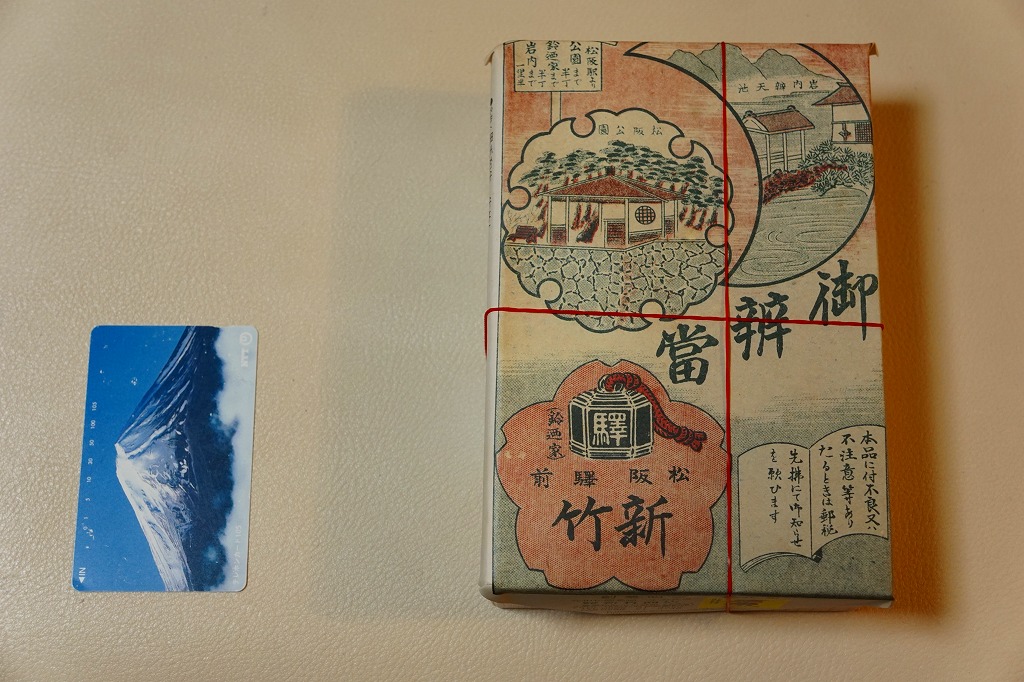 松阪駅より
公園まで
半丁
鈴廼家まで
半丁
岩内まで
一里半
岩内辨天池
松阪公園
御辨當
驛
鈴廼家
松阪驛前
新竹
本品に付不良又ハ
不注意等あり
たるときは郵税
先拂にて御知らせ
を願ひます
IN
10
20
30
50
100
105